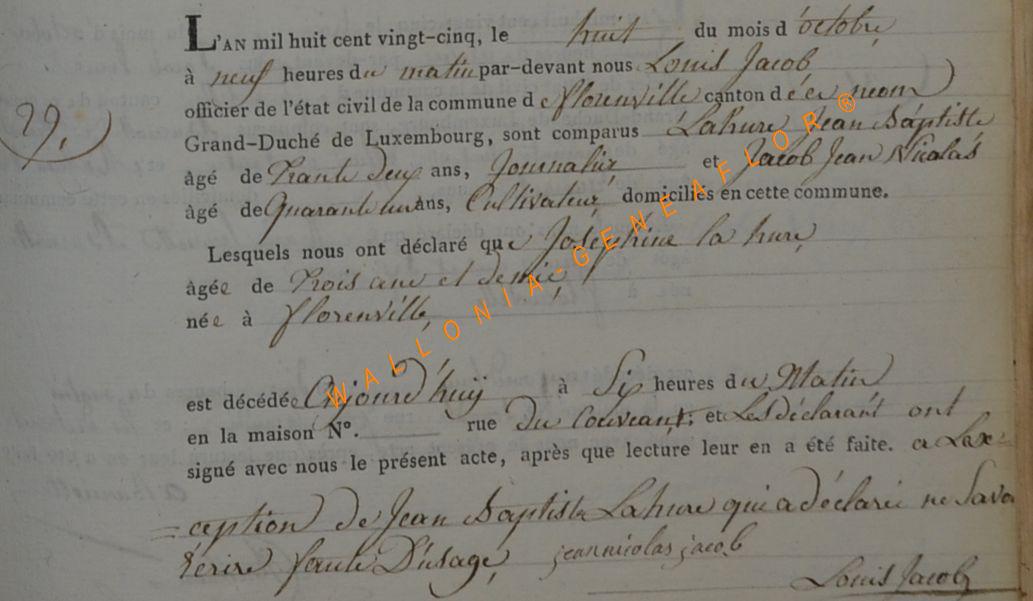 L'AN mil huit cent vingt-cinq, le huit du mois d'octobre
à neuf heures du matin par-devant nous Louis Jacob
officier de l'état civil de la commune de florenville canton de
29.) Grand-Duché de Luxembourg, sont comparus Lahure Jean Baptiste
âgé de Trante deux ans, Journalier et Jacob Jean Nicolas
âgé de Quarante un ans, Cultivateur domiciliés en cette commune.
Lesquels nous ont déclaré que Joséphine la hure
âgée de Trois ans et demie
née à florenville
est décédée Aujourd'huÿ à Six heures du Matin
en la maison N°. rue Du Couveant; et Les déclarant ont
signé avec nous le présent acte, après que lecture leur en a été faite. a Lex-
=ception de Jean Baptiste Lahure qui a déclaré ne Savo
Écrire faute D'usage, jean nicolas jacob
Louis Jacob
WALLONIA-GENEAFLOR®